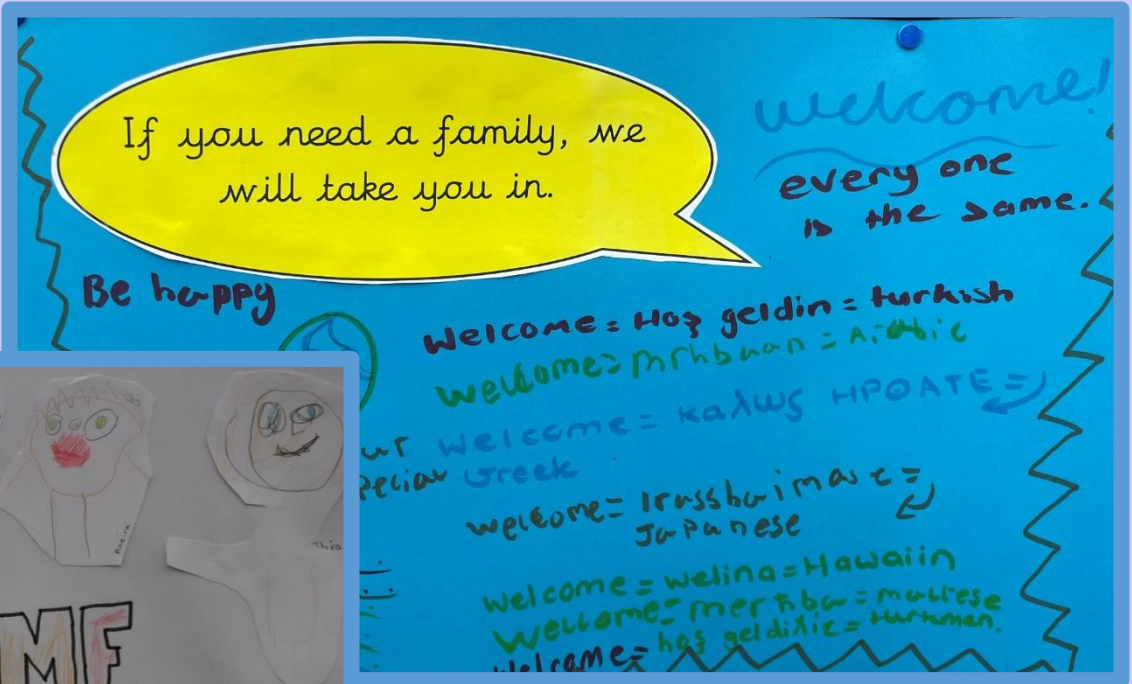 If you need a family, we
will take you in.
welcome!
every one
is the same.
Be happy
Welcome = Hoş geldin = turkish
Welcome = mrhbaan = Arabic
ur
welcome = καλως ΗΡΘΑΤΕ =
Greek
welcome = Irasshaimase =
Japanese
welcome = welina = Hawaiin
Welcome = merħba = maltese
Welcome = hoş geldiňiz = turkmen.
Aneira
ME